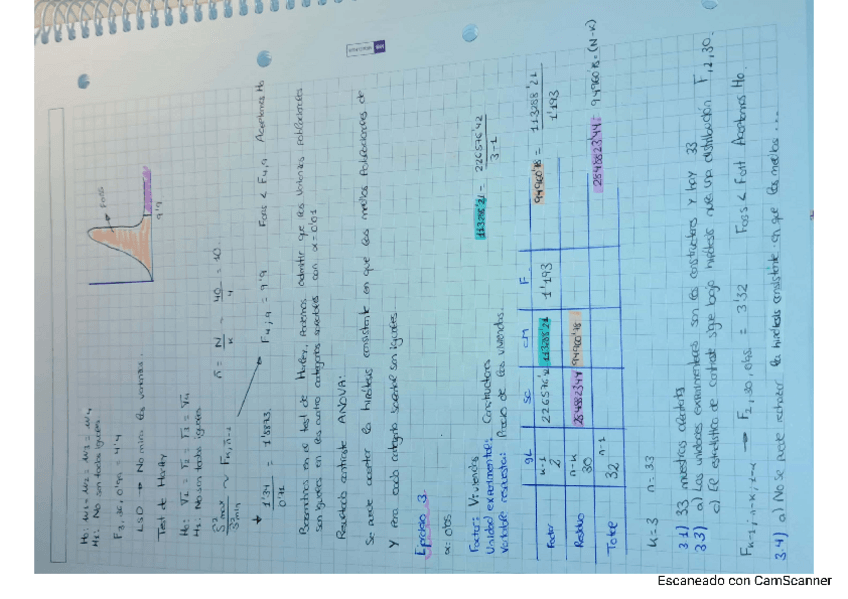 H0: μ1 = μ2 = μ3 = μ4
H1: No son todas iguales
F3, 36, 0'99 = 4'4
LSD → No mira las varianzas.
Test de Hartley
H0: √1 = √2 = √3 = √4
H1: No son todas iguales
S²max / S²min ~ Fk, ñ-1
ñ = N/k = 40/4 = 10
1'34 / 0'71 = 1'8873. → F4,9 = 9'9 Fobs < F4,9 Aceptamos H0
Fobs
9'9
Basándonos en el test de Hartley, podemos admitir que las varianzas poblacionales
son iguales en las cuatro categorías con α=0'01
Resultado contraste ANOVA:
Se puede aceptar la hipótesis consistente en que las medias poblacionales de
Y para cada categoría son iguales
Ejercicio 3
α=0'05
Factor: Viviendas
Unidad experimental: Constructoras
Variable respuesta: Precio de las viviendas.
113288'21 = 226576'42 / 3-1
GL SC CM F
Factor k-1 2 226576'42 113288'21 1'193
94960'78 = 113288'21 / 1'193
Residuo n-k 30 2848823'44 94960'78
Total 32 n-1
2848823'44 = 94960'78 · (N-k)
k=3 n=33
3.1) 33
3.3) a) Las unidades experimentales son las constructoras y hay 33
c) El estadístico de contraste sigue bajo hipótesis nula una distribución F,2,30.
Fk-1; n-k; 1-α → F2,30,0'95 = 3'32 Fobs < Fcrit Aceptamos H0.
3.4) a) No se puede rechazar la hipótesis consistente en que las medias ...
Escaneado con CamScanner